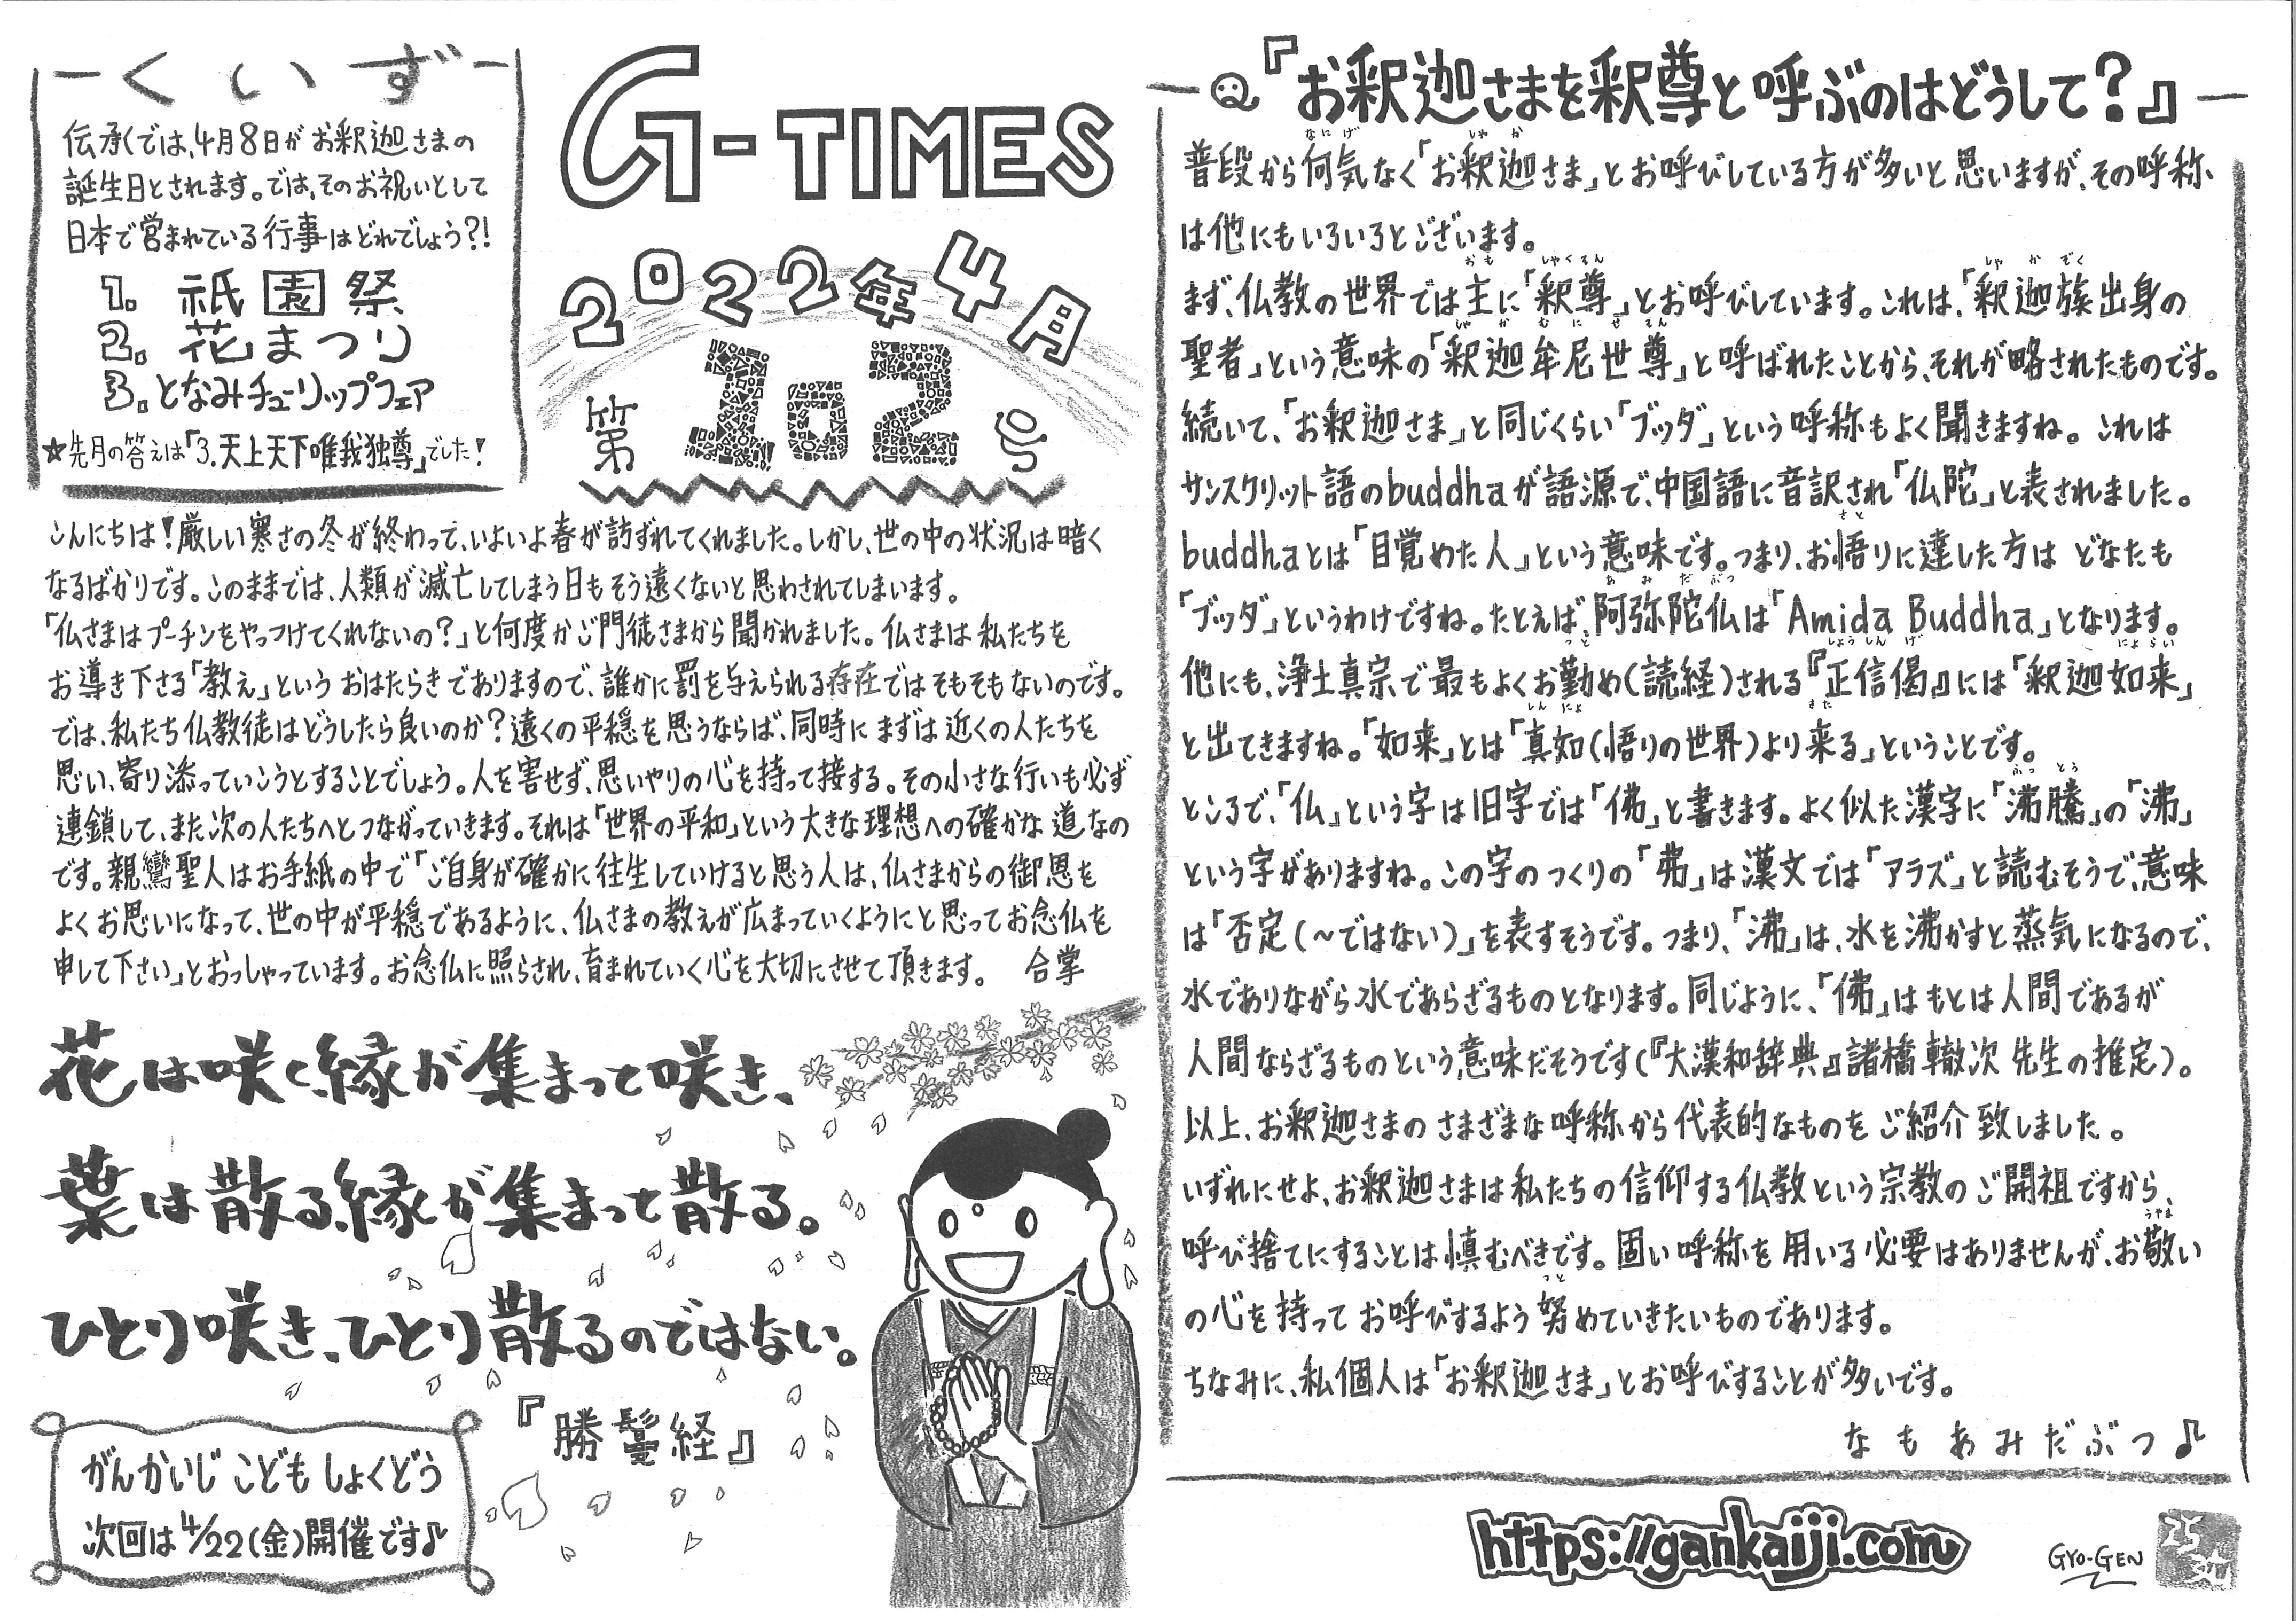 くいず
伝承では、4月8日がお釈迦さまの
誕生日とされます。では、そのお祝いとして
日本で営まれている行事はどれでしょう?!
1. 祇園祭
2. 花まつり
3. となみチューリップフェア
☆先月の答えは「3.天上天下唯我独尊」でした!
G-TIMES
2022年4月
第102号
こんにちは!厳しい寒さの冬が終わって、いよいよ春が訪ずれてくれました。しかし、世の中の状況は暗く
なるばかりです。このままでは、人類が滅亡してしまう日もそう遠くないと思わされてしまいます。
「仏さまはプーチンをやっつけてくれないの?」と何度かご門徒さまから聞かれました。仏さまは私たちを
お導き下さる「教え」というおはたらきでありますので、誰かに罰を与えられる存在ではそもそもないのです。
では、私たち仏教徒はどうしたら良いのか?遠くの平穏を思うならば、同時にまずは近くの人たちを
思い、寄り添っていこうとすることでしょう。人を害せず、思いやりの心を持って接する。その小さな行いも必ず
連鎖して、また次の人たちへとつながっていきます。それは「世界の平和」という大きな理想への確かな道なの
です。親鸞聖人はお手紙の中で「ご自身が確かに往生していけると思う人は、仏さまからの御恩を
よくお思いになって、世の中が平穏であるように、仏さまの教えが広まっていくようにと思ってお念仏を
申して下さい」とおっしゃっています。お念仏に照らされ、育まれていく心を大切にさせて頂きます。 合掌
花は咲く縁が集まって咲き、
葉は散る縁が集まって散る。
ひとり咲き、ひとり散るのではない。
『勝鬘経』
がんかいじ こども しょくどう
次回は4/22(金)開催です♪
Q『お釈迦さまを釈尊と呼ぶのはどうして?』
普段から何気なく「お釈迦さま」とお呼びしている方が多いと思いますが、その呼称
は他にもいろいろとございます。
まず、仏教の世界では主に「釈尊」とお呼びしています。これは、「釈迦族出身の
聖者」という意味の「釈迦牟尼世尊」と呼ばれたことから、それが略されたものです。
続いて、「お釈迦さま」と同じくらい「ブッダ」という呼称もよく聞きますね。これは
サンスクリット語のbuddhaが語源で、中国語に音訳され「仏陀」と表されました。
buddhaとは「目覚めた人」という意味です。つまり、お悟りに達した方は どなたも
「ブッダ」というわけですね。たとえば、阿弥陀仏は「Amida Buddha」となります。
他にも、浄土真宗で最もよくお勤め(読経)される『正信偈』には「釈迦如来」
と出てきますね。「如来」とは「真如(悟りの世界)より来る」ということです。
ところで、「仏」という字は旧字では「佛」と書きます。よく似た漢字に「沸騰」の「沸」
という字がありますね。この字のつくりの「弗」は漢文では「アラズ」と読むそうで、意味
は「否定(~ではない)」を表すそうです。つまり、「沸」は、水を沸かすと蒸気になるので、
水でありながら水であらざるものとなります。同じように、「佛」はもとは人間であるが
人間ならざるものという意味だそうです(『大漢和辞典』諸橋轍次先生の推定)。
以上、お釈迦さまのさまざまな呼称から代表的なものをご紹介致しました。
いずれにせよ、お釈迦さまは私たちの信仰する仏教という宗教のご開祖ですから、
呼び捨てにすることは慎むべきです。固い呼称を用いる必要はありませんが、お敬い
の心を持ってお呼びするよう努めていきたいものであります。
ちなみに、私個人は「お釈迦さま」とお呼びすることが多いです。
なもあみだぶつ♪
https://gankaiji.com
GYO-GEN